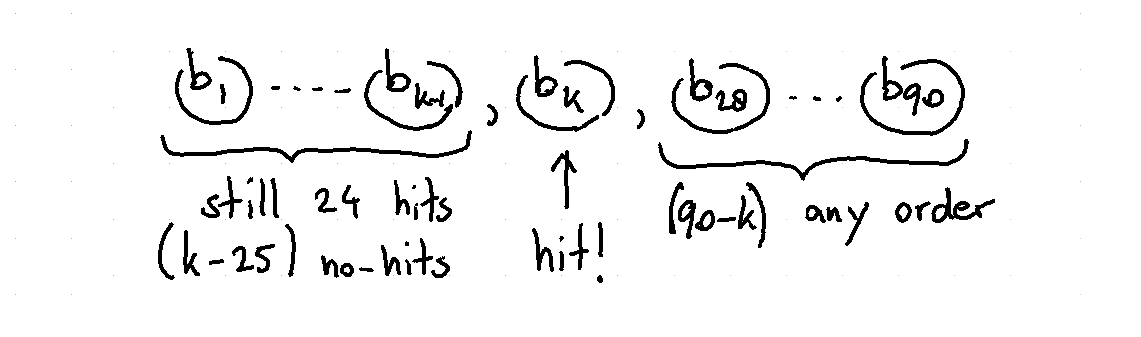 b₁ ····· bₖ₋₁, bₖ, b₂₈ ··· b₉₀
still 24 hits
(k-25) no-hits
hit!
(90-k) any order